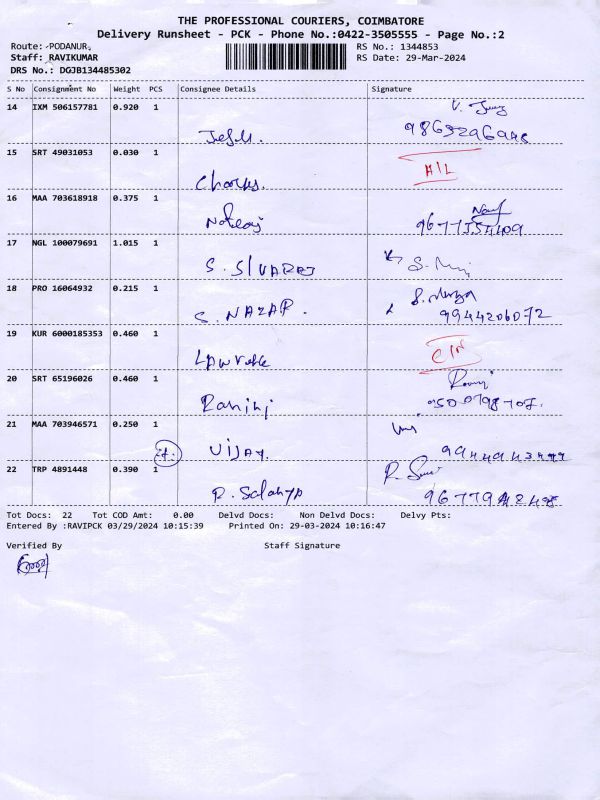 THE PROFESSIONAL COURIERS, COIMBATORE
Delivery Runsheet - PCK - Phone No.:0422-3505555 - Page No.:2
Route: PODANUR, RS No.: 1344853
Staff: RAVIKUMAR RS Date: 29-Mar-2024
DRS No.: DGJB134485302
S No Consignment No Weight PCS Consignee Details Signature
14 IXM 506157781 0.920 1
15 SRT 49031053 0.030 1
16 MAA 703618918 0.375 1
17 NGL 100079691 1.015 1
S. SIVARAJ
18 PRO 16064932 0.215 1
S. NAZAR. 9944206072
19 KUR 6000185353 0.460 1
20 SRT 65196026 0.460 1
21 MAA 703946571 0.250 1
VIJAY.
22 TRP 4891448 0.390 1
Tot Docs: 22 Tot COD Amt: 0.00 Delvd Docs: Non Delvd Docs: Delvy Pts:
Entered By :RAVIPCK 03/29/2024 10:15:39 Printed On: 29-03-2024 10:16:47
Verified By Staff Signature